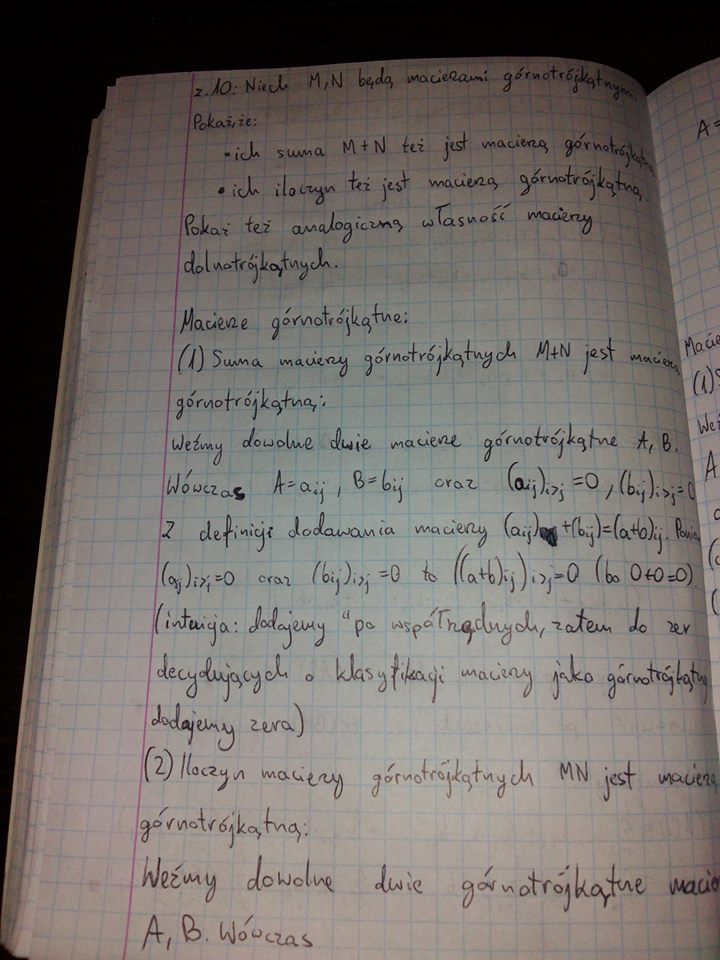 z.10: Niech M,N będą macierzami górnotrójkątnymi.
Pokaż, że:
• ich suma M+N też jest macierzą górnotrójkątną
• ich iloczyn też jest macierzą górnotrójkątną.
Pokaż też analogiczną własność macierzy
dolnotrójkątnych.
Macierze górnotrójkątne:
(1) Suma macierzy górnotrójkątnych M+N jest macierzą
górnotrójkątną:
Weźmy dowolne dwie macierze górnotrójkątne A, B.
Wówczas A=aij, B=bij oraz (aij)i>j=0, (bij)i>j=0
Z definicji dodawania macierzy (aij)+(bij)=(a+b)ij.
(aij)i>j=0 oraz (bij)i>j=0 to ((a+b)ij)i>j=0 (bo 0+0=0)
(intuicja: dodajemy "po współrzędnych, zatem do zer
decydujących o klasyfikacji macierzy jako górnotrójkątnej
dodajemy zera)
(2) Iloczyn macierzy górnotrójkątnych MN jest macierzą
górnotrójkątną:
Weźmy dowolne dwie górnotrójkątne macie
A, B. Wówczas
A=
Macie
(1) S
Weź
A